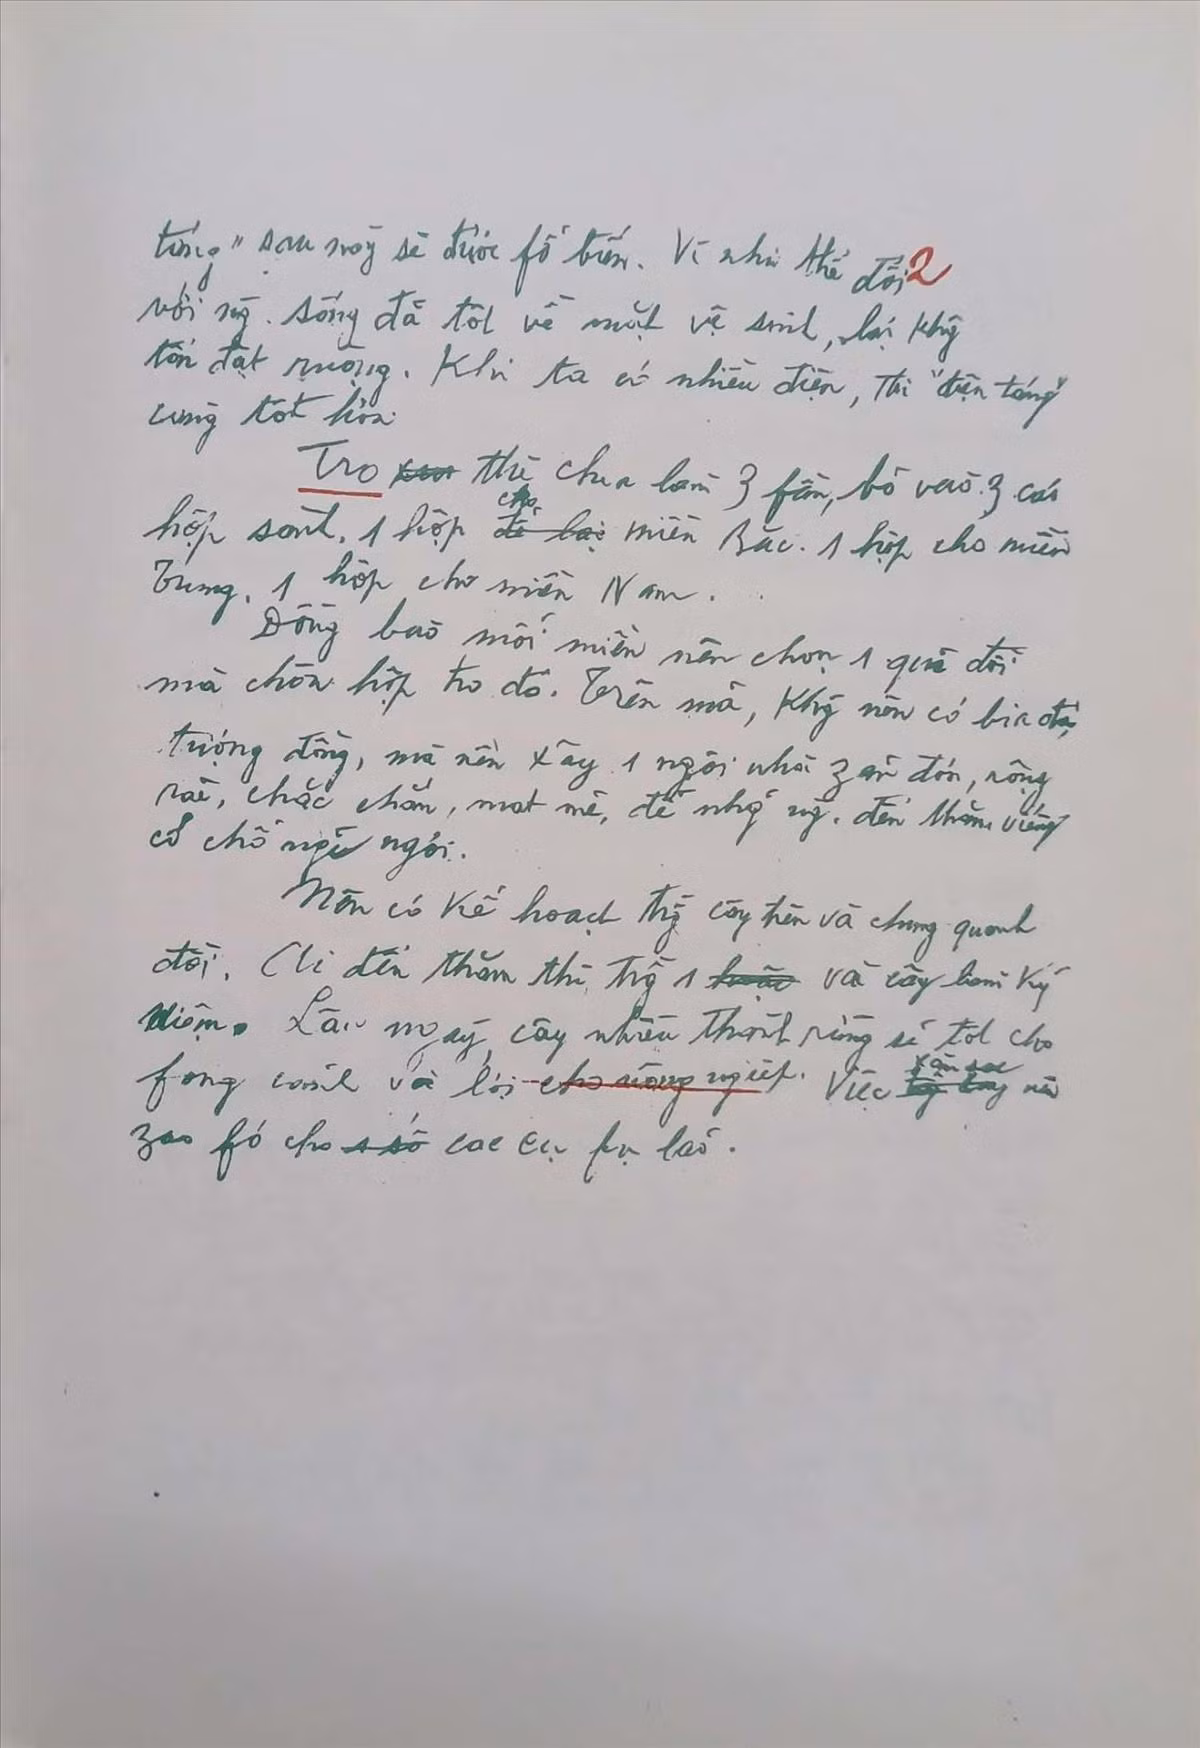 táng" sau này sẽ được fổ biến. Vì như thế đối 2
với ng. sống đã tốt về mặt vệ sinh, lại khg
tốn đất ruộng. Khi ta có nhiều điện, thì "điện táng"
càng tốt hơn.
Tro thì chia làm 3 fần, bỏ vào 3 cái
hộp sành. 1 hộp cho miền Bắc. 1 hộp cho miền
Trung. 1 hộp cho miền Nam.
Đồng bào mỗi miền nên chọn 1 quả đồi
mà chôn hộp tro đó. Trên mả, khg nên có bia đá,
tượng đồng, mà nên xây 1 ngôi nhà zản đơn, rộng
rãi, chắc chắn, mát mẻ, để nhg ng. đến thăm viếng
có chỗ ngỉ ngơi.
Nên có kế hoạch trồg cây trên và chung quanh
đồi. Ai đến thăm thì trồg 1 vài cây làm kỷ
niệm. Lâu ngày, cây nhiều thành rừng sẽ tốt cho
fong cảnh và lợi cho nông ngiệp. Việc săn sóc nên
zao fó cho các cụ fụ lão.